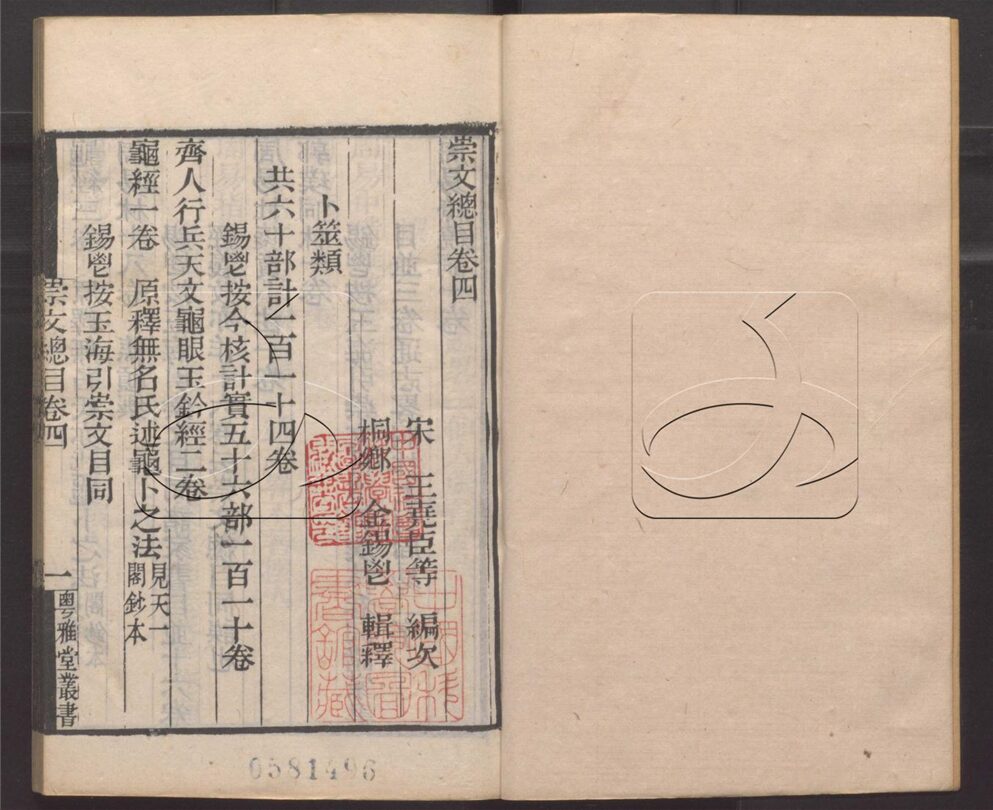 崇文總目卷四
宋 王堯臣等 編次
桐鄉 金錫鬯 輯釋
卜筮類
共六十部計一百一十四卷
錫鬯按今核計實五十六部一百一十卷
齊人行兵天文龜眼玉鈐經二卷
龜經一卷 原釋無名氏述龜卜之法見天一閣鈔本
錫鬯按玉海引崇文目同
崇文總目卷四 一 粵雅堂叢書
0581496